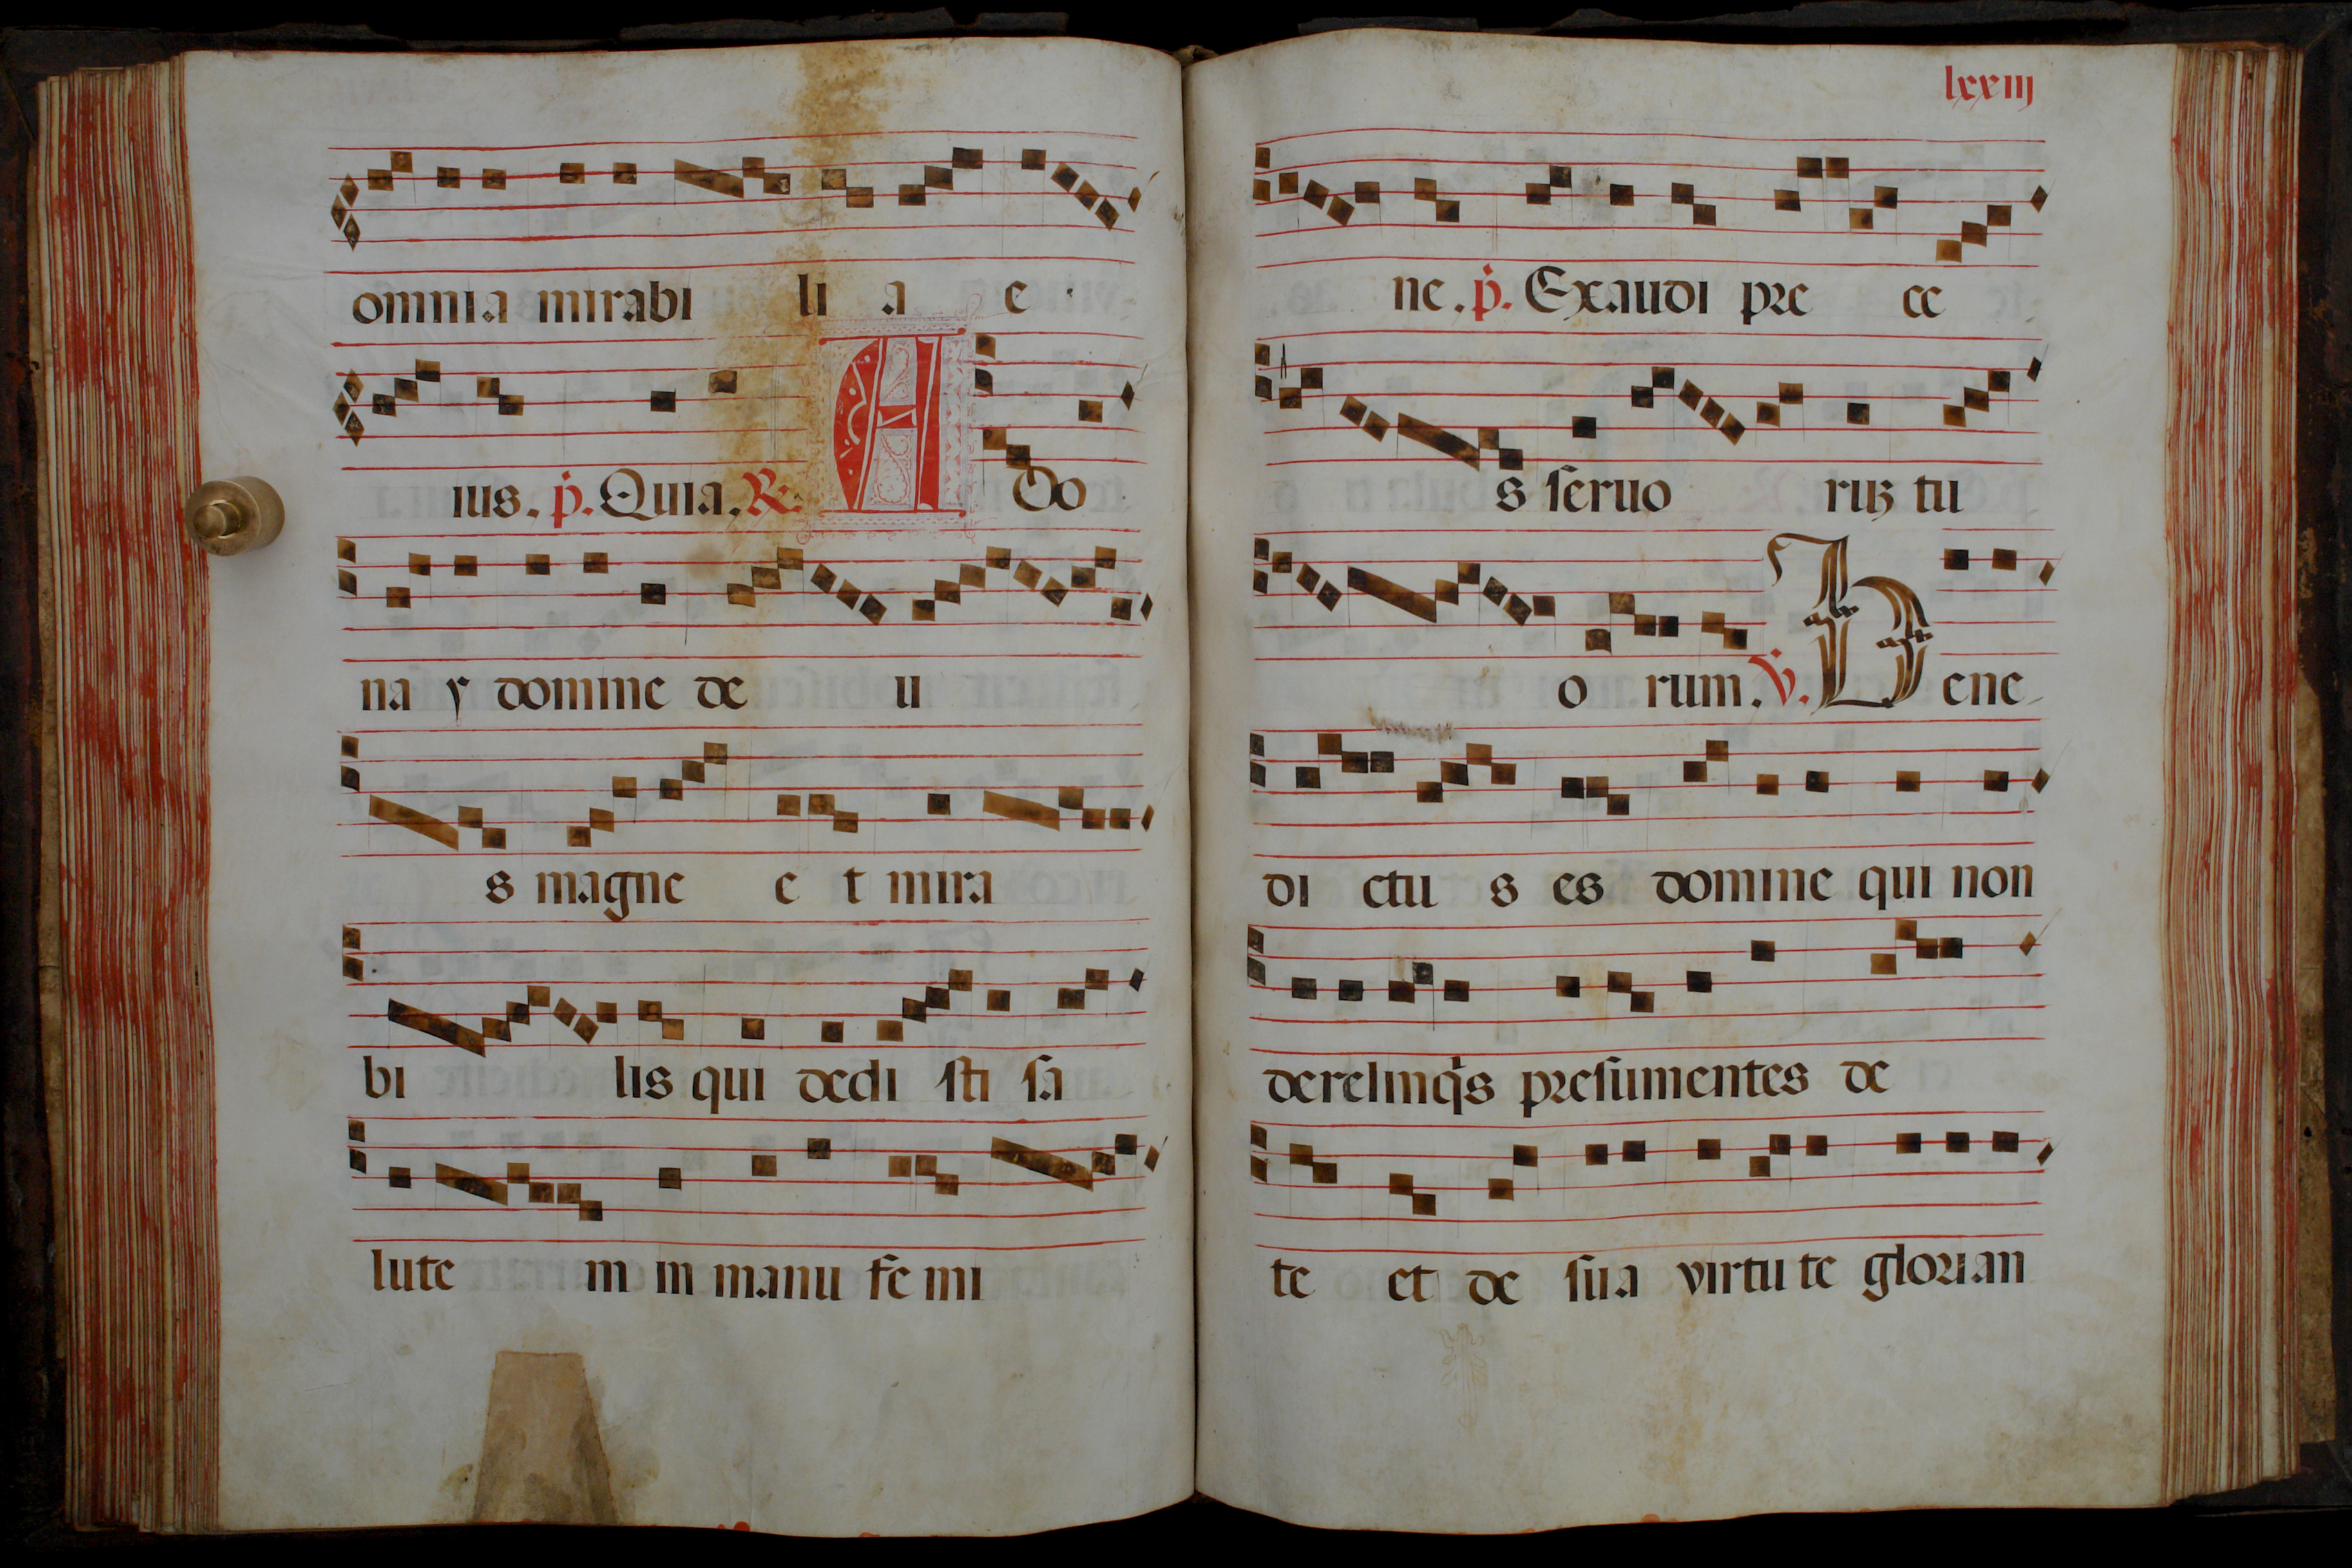 omnia mirabi li a e
ius. p. Quia. R. A Do
na y domine de u
s magne e t mira
bi lis qui dedi sti sa
lute m in manu fe mi
lxxiij
ne. p. Exaudi pre ce
s seruo ruz tu
o rum. V. Bene
di ctu s es domine qui non
derelinqs presumentes de
te et de sua virtute glorian